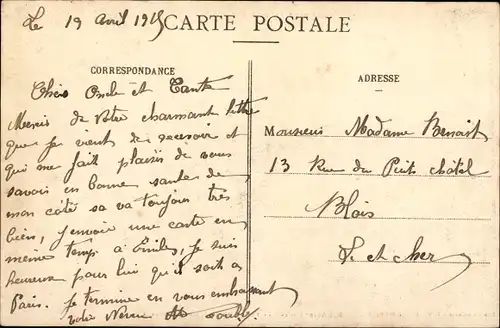 Le 19 avril 1915 CARTE POSTALE
CORRESPONDANCE
Chers Oncle et Tante
Mersis de votre charmant lettre
que je vient de recevoir et
qui me fait plaisir de vous
savoir en bonne santer de
mon côté sa va toujour très
bien, j'envoie une carte en
même temp à Emiles, je suis
heureux pour lui qu'il soit a
Paris. Je termine en vous embrassant
votre Neveu
ADRESSE
Monsieur Madame Benoit
13 Rue du Puits châtel
Blois
L. et cher